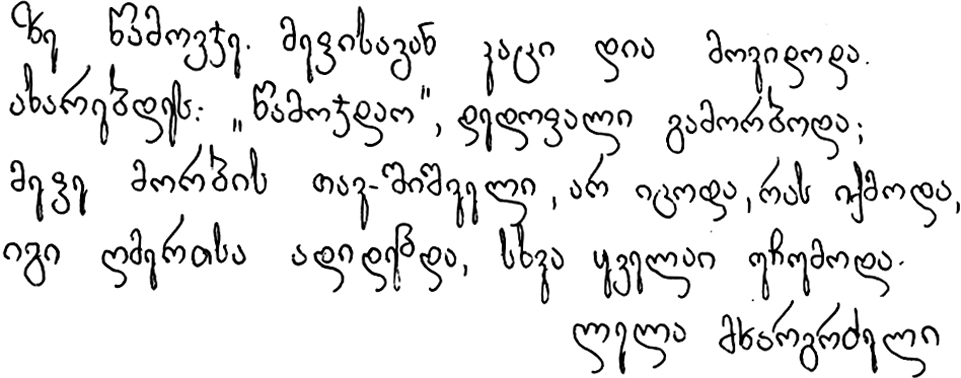 ზე წამოვჯე. მეფისაგან კაცი დია მოვიდოდა.
ახარებდეს: „წამოჯდაო", დედოფალი გამორბოდა;
მეფე მორბის თავ-შიშველი, არ იცოდა, რას იქმოდა,
იგი ღმერთსა ადიდებდა, სხვა ყველაი ჩუმოდა.
ლელა მხარგრძელი